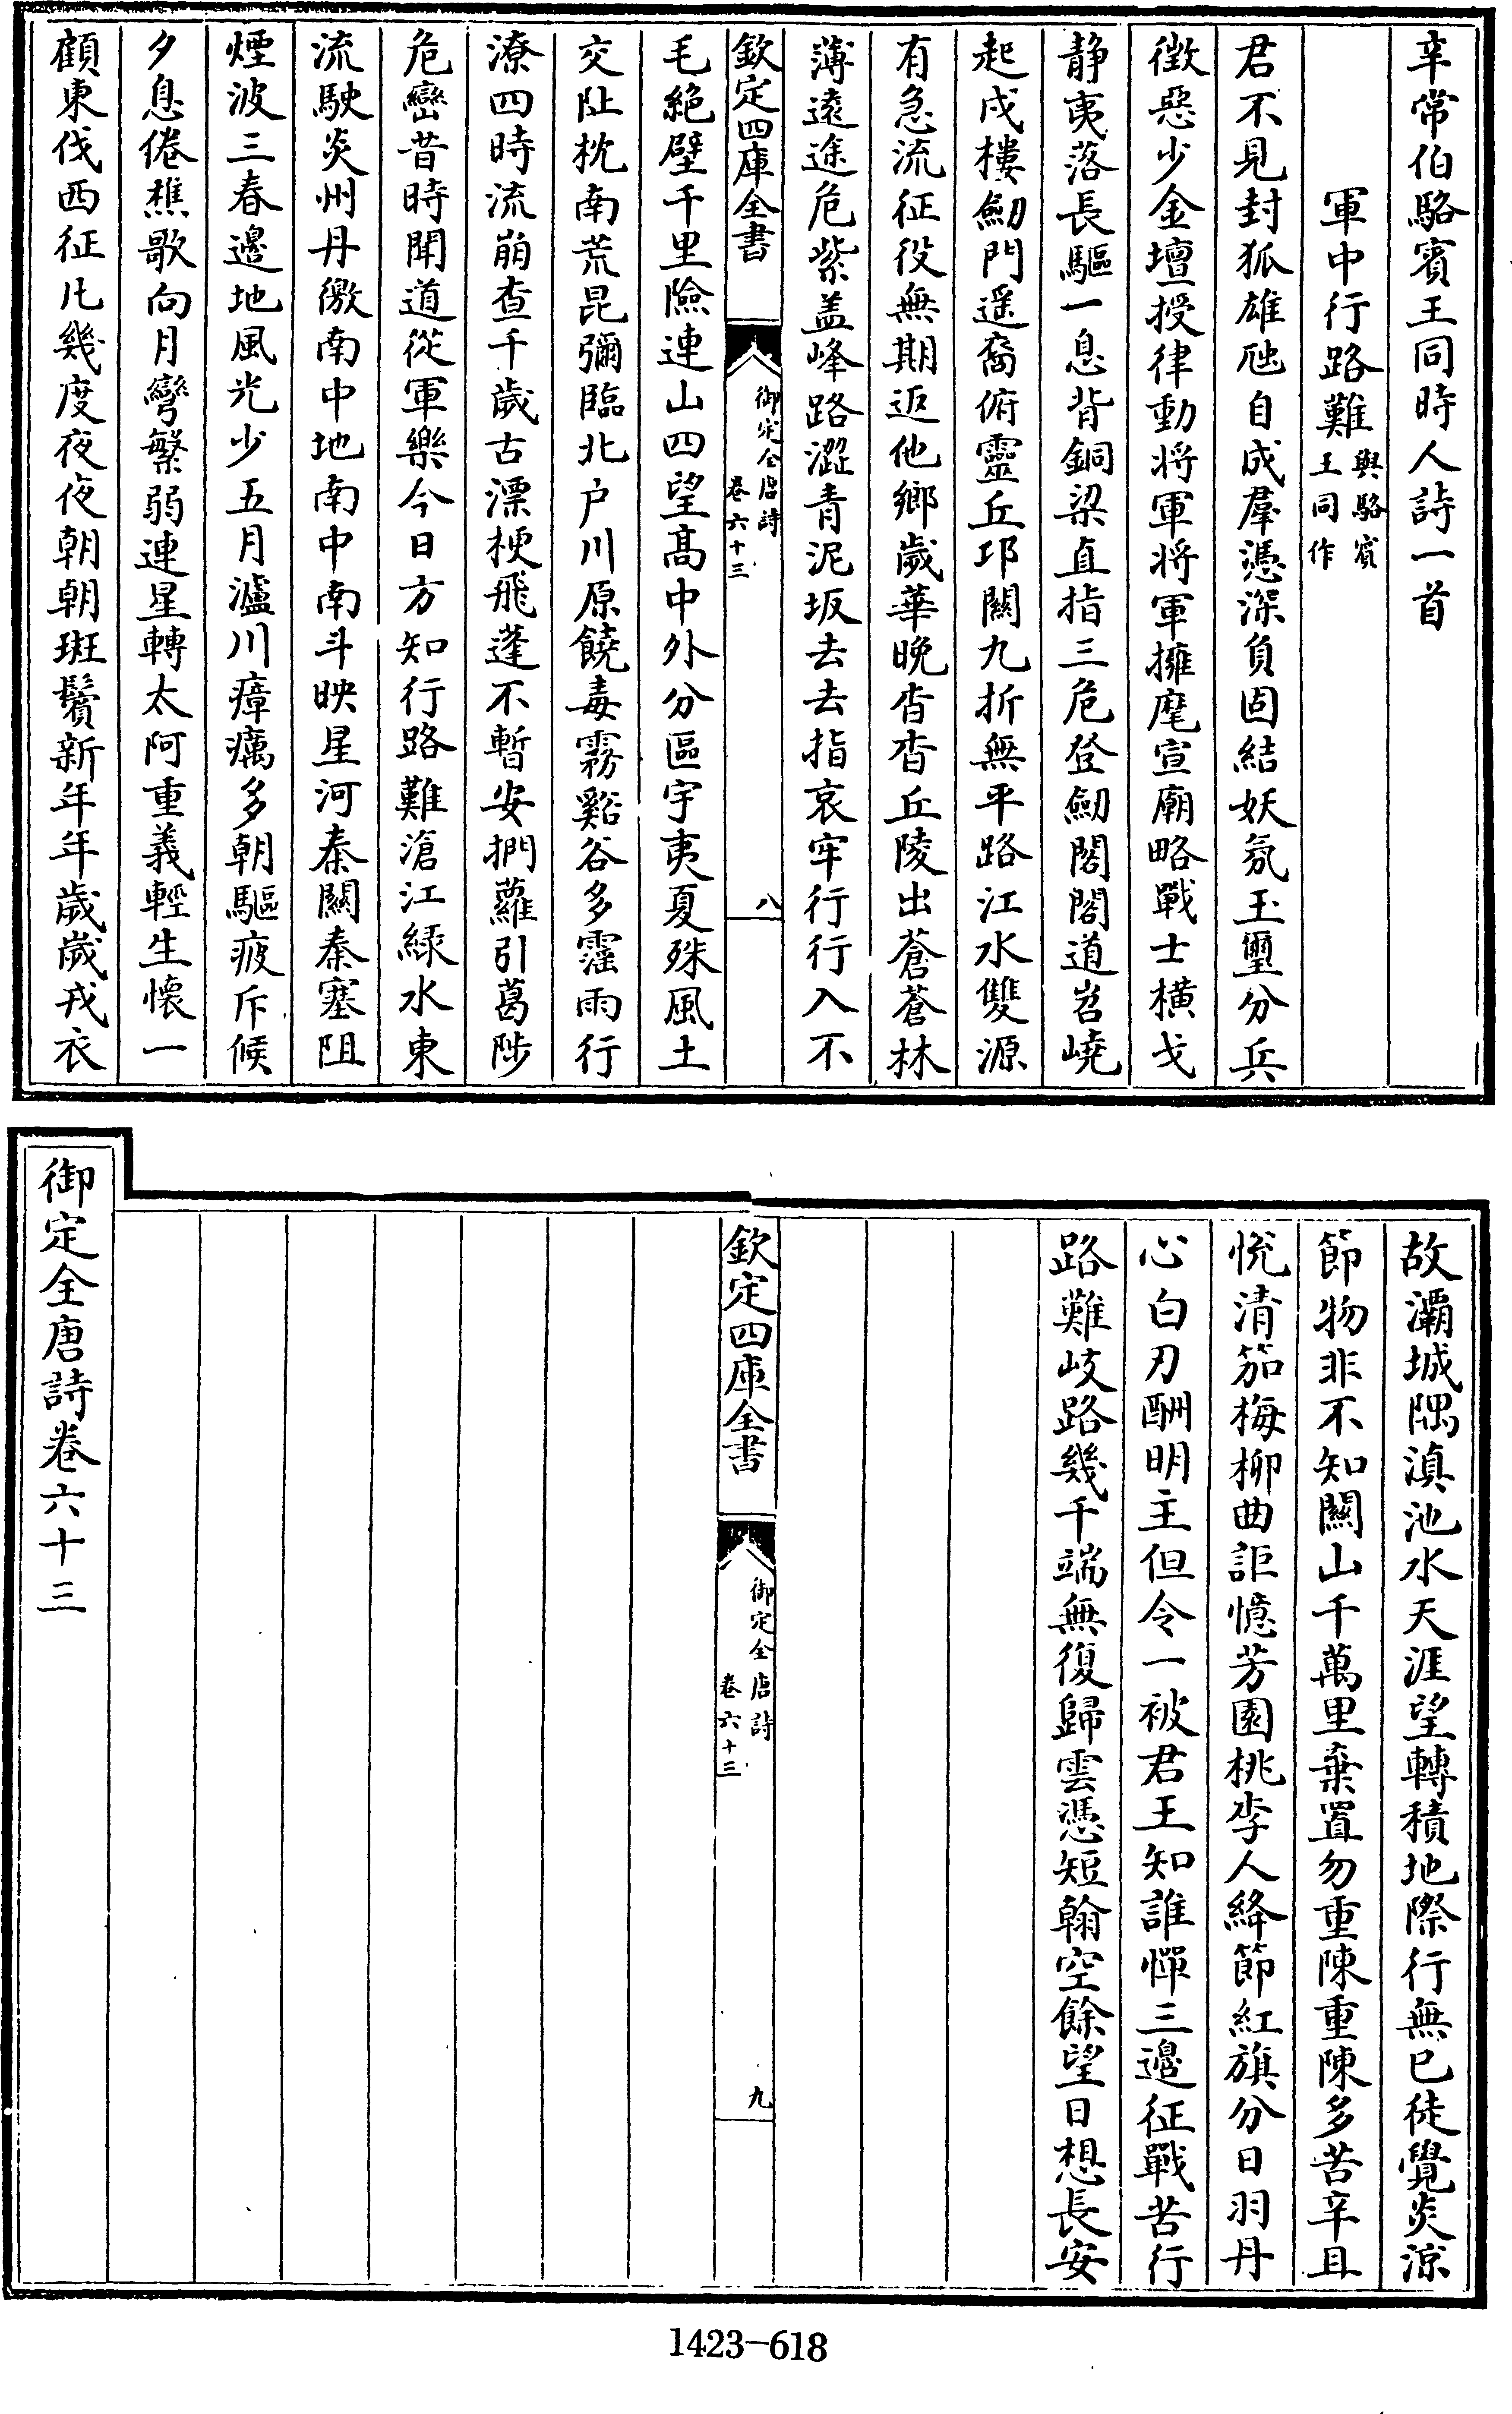 辛常伯駱賓王同時人詩一首
軍中行路難與駱賓王同作
君不見封狐雄虺自成羣憑深負固結妖氛玉璽分兵
徵惡少金壇授律動將軍將軍擁麾宣廟略戰士橫戈
静夷落長驅一息背銅梁直指三危登劒閣閣道岧嶢
起戍樓劒門遥裔俯靈丘邛關九折無平路江水雙源
有急流征役無期返他鄉歲華晚杳杳丘陵出蒼蒼林
薄遠途危紫盖峰路澀青泥坂去去指哀牢行行入不
欽定四庫全書
御定全唐詩
卷六十三
八
毛絶壁千里險連山四望髙中外分區宇夷夏殊風土
交阯枕南荒昆彌臨北户川原饒毒霧谿谷多霪雨行
潦四時流崩查千歲古漂梗飛蓬不暫安捫蘿引葛陟
危巒昔時聞道從軍樂今日方知行路難滄江緑水東
流駛炎州丹徼南中地南中南斗映星河秦關秦塞阻
煙波三春邊地風光少五月瀘川瘴癘多朝驅疲斥候
夕息倦樵歌向月彎繁弱連星轉太阿重義輕生懷一
顧東伐西征凡幾度夜夜朝朝斑鬢新年年歲歲戎衣
故灞城隅滇池水天涯望轉積地際行無已徒覺炎涼
節物非不知關山千萬里棄置勿重陳重陳多苦辛且
悅清笳梅柳曲詎憶芳園桃李人絳節紅旗分日羽丹
心白刃酬明主但令一被君王知誰憚三邊征戰苦行
路難岐路幾千端無復歸雲憑短翰空餘望日想長安
欽定四庫全書
御定全唐詩
卷六十三
九
御定全唐詩卷六十三
1423-618